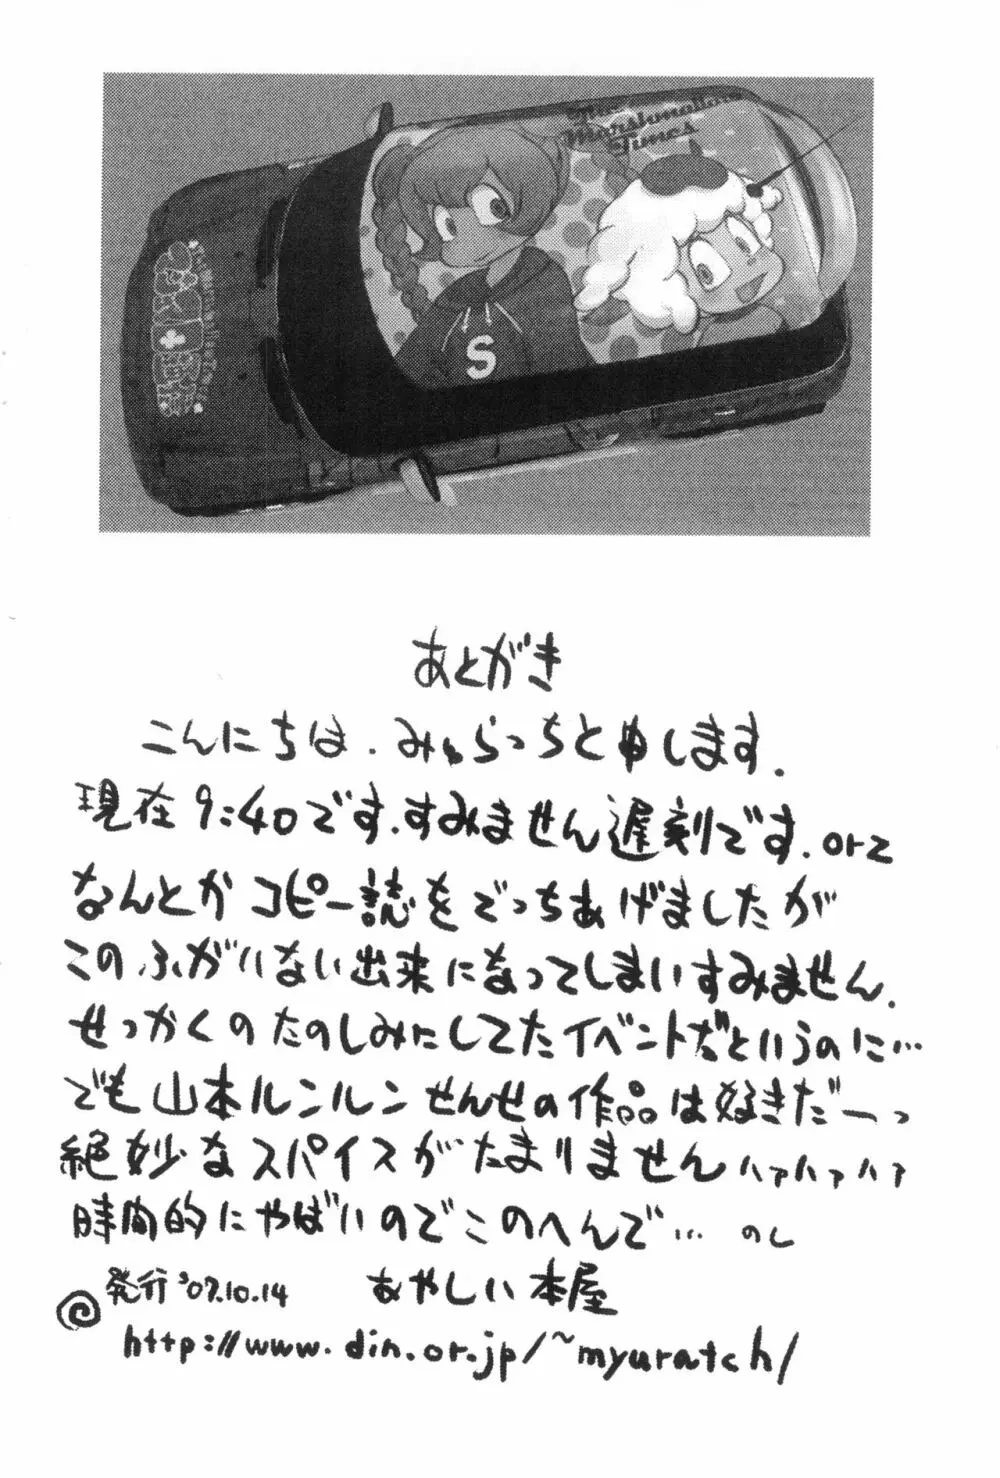 The
Marshmallow
Times
S
あとがき
こんにちは、みゅらっちと申します.
現在9:40です.すみません遅刻です.orz
なんとかコピー誌をでっちあげましたが
このふがいない出来になってしまいすみません.
せっかくのたのしみにしてたイベントだというのに…
でも山本ルンルンせんせの作品は好きだーっ
絶妙なスパイスがたまりませんハァハァハァ
時間的にやばいのでこのへんで… のし
発行'07.10.14 あやしい本屋
http://www.din.or.jp/~myuratch/